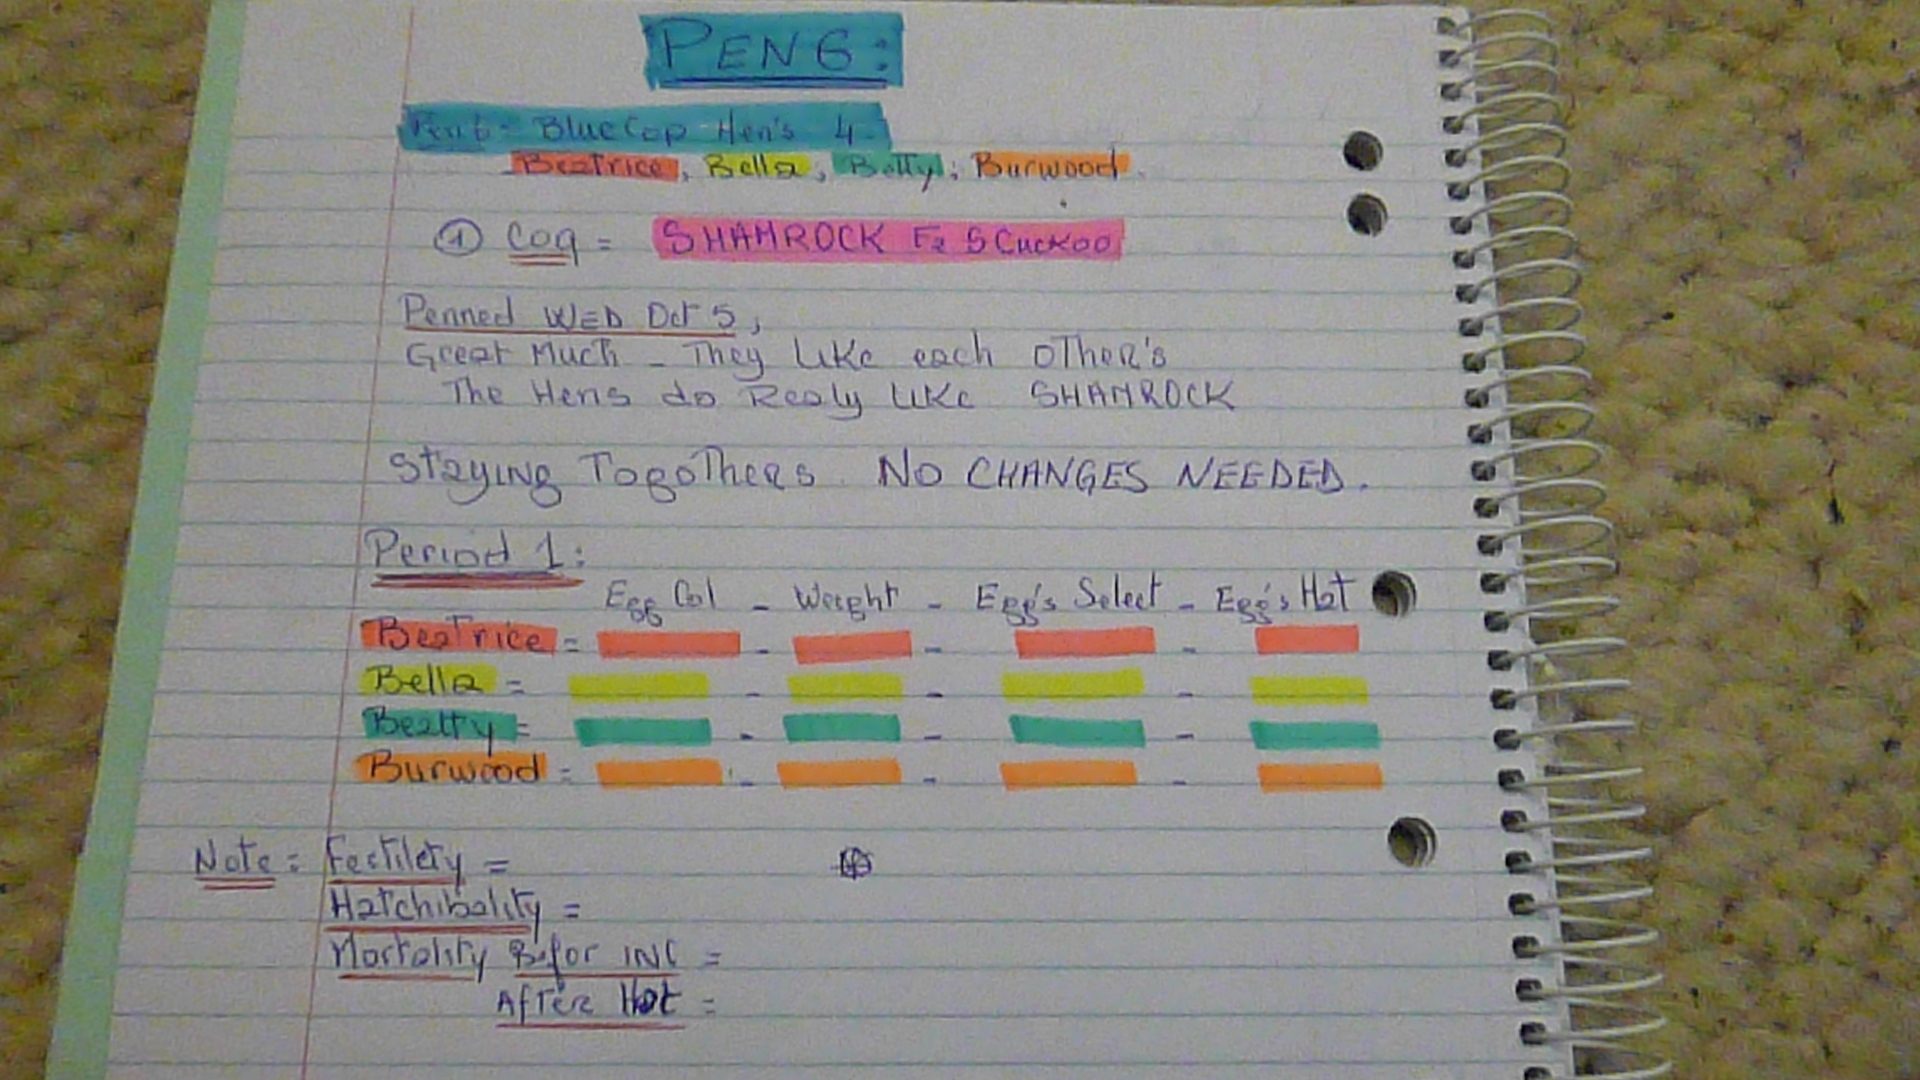 PEN 6:
Pen 6 = Blue Cop Hen's 4
Beatrice, Bella, Betty, Burwood.
① Coq = SHAMROCK F2 S Cuckoo
Penned WED Oct 5,
Great Much - They Like each oTher's
The Hens do Realy Like SHAMROCK
Staying TogoThers. NO CHANGES NEEDED.
Period 1:
Egg Col - Weight - Egg's Select - Egg's Hat
Beatrice = - - -
Bella = - - -
Beatty = - - -
Burwood = - - -
Note = Fertilety =
Hatchibality =
Mortality Befor INC =
After Hat =